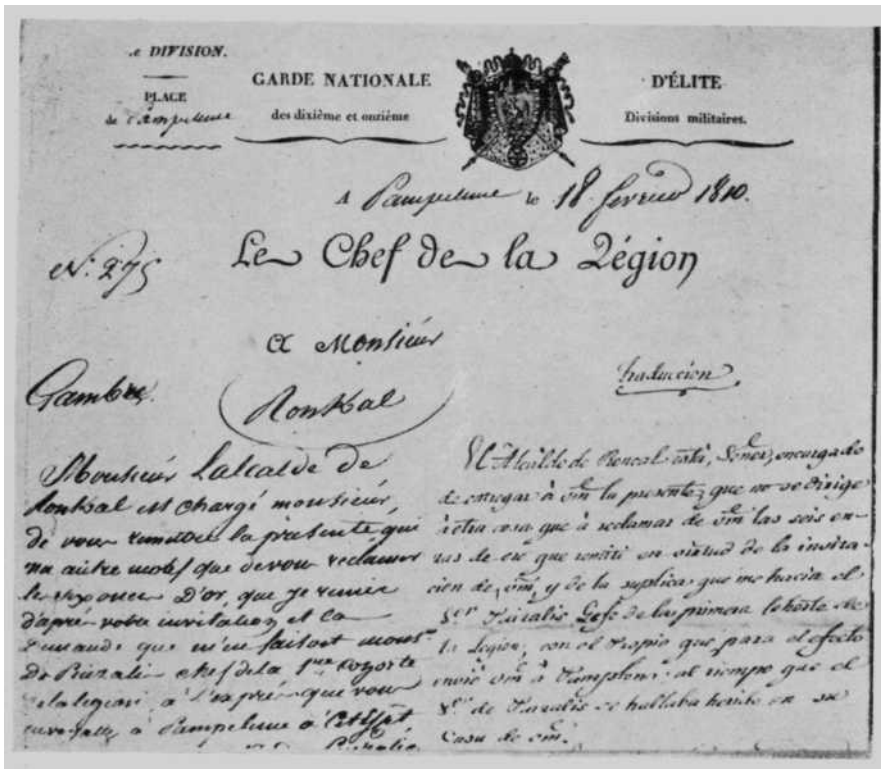 .e DIVISION.
PLACE
de Campelune
GARDE NATIONALE
des dixième et onzième
D'ÉLITE
Divisions militaires.
A Pampelune le 18 fevrier 1810.
N.º 275
Le Chef de la Légion
A Monsieur
Gambre.
Ronkal
Monsieur Lalcalde de
Ronkal est chargé monsieur,
de vous remettre la présente, qui
na autre motif que de vous reclamer
le six onces D'or, que je remis
d'après votre invitation et la
Demande que m'en faisoit mons.r
De chef de la 1ere Coyorte
de la legion, à l'exprés que vous
à Pampelune à Cet effet
Traduccion
El Alcalde de Roncal está, Señor, encargado
de entregar à Vm la presente, que no se dirige
à otra cosa que à reclamar de Vm las seis on-
zas de oro que remití en virtud de la invita-
cion de Vm, y de la suplica que me hacia el
S.or Gefe de la primera Cohorte de
la Legion, con el Propio que para el efecto
envió Vm à Pamplona, al tiempo que el
S.or de se hallaba herido en su
Casa de Vm.